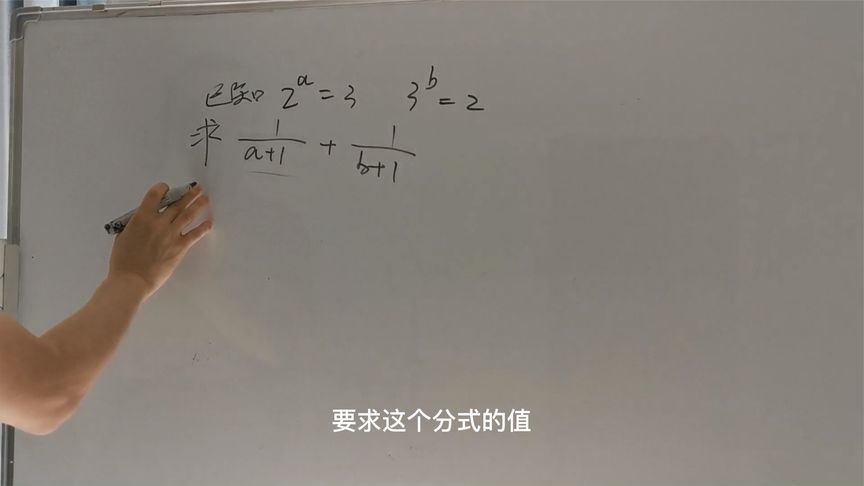 已知 2^a = 3 3^b = 2
求 1/(a+1) + 1/(b+1)
要求这个分式的值